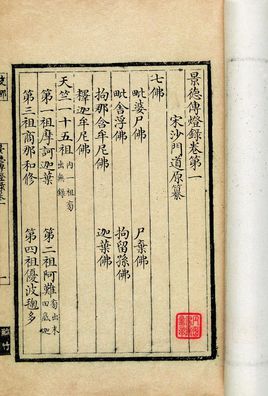 景德傳燈錄卷第一
宋沙門道原纂
七佛
毗婆尸佛　尸棄佛
毗舍浮佛　拘留孫佛
拘那含牟尼佛　迦葉佛
釋迦牟尼佛
天竺一十五祖內一祖旁出無錄
第一祖摩訶迦葉　第二祖阿難
第三祖商那和修　第四祖優波毱多